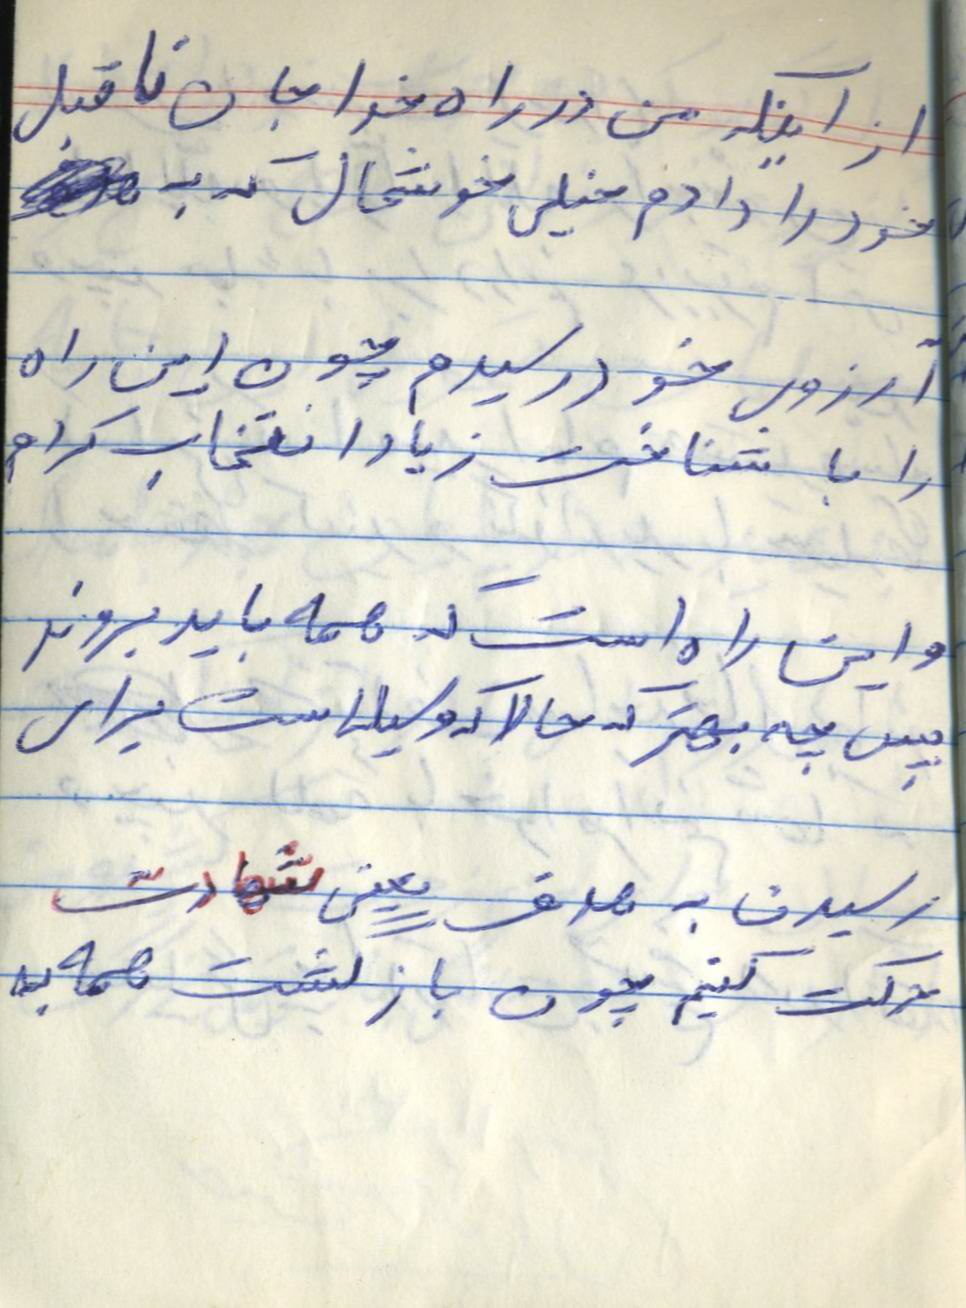 از اینکه من در راه خدا جان ناقبل
خود را دادم خیلی خوشحال که به
آرزوی خود رسیدم چون این راه
را با شناخت زیاد انتخاب کردم
و این راه است که همه باید بروند
پس چه بهتر که حالا که وسیله است برای
رسیدن به هدف یعنی شهادت
حرکت کنیم چون بازگشت همه به